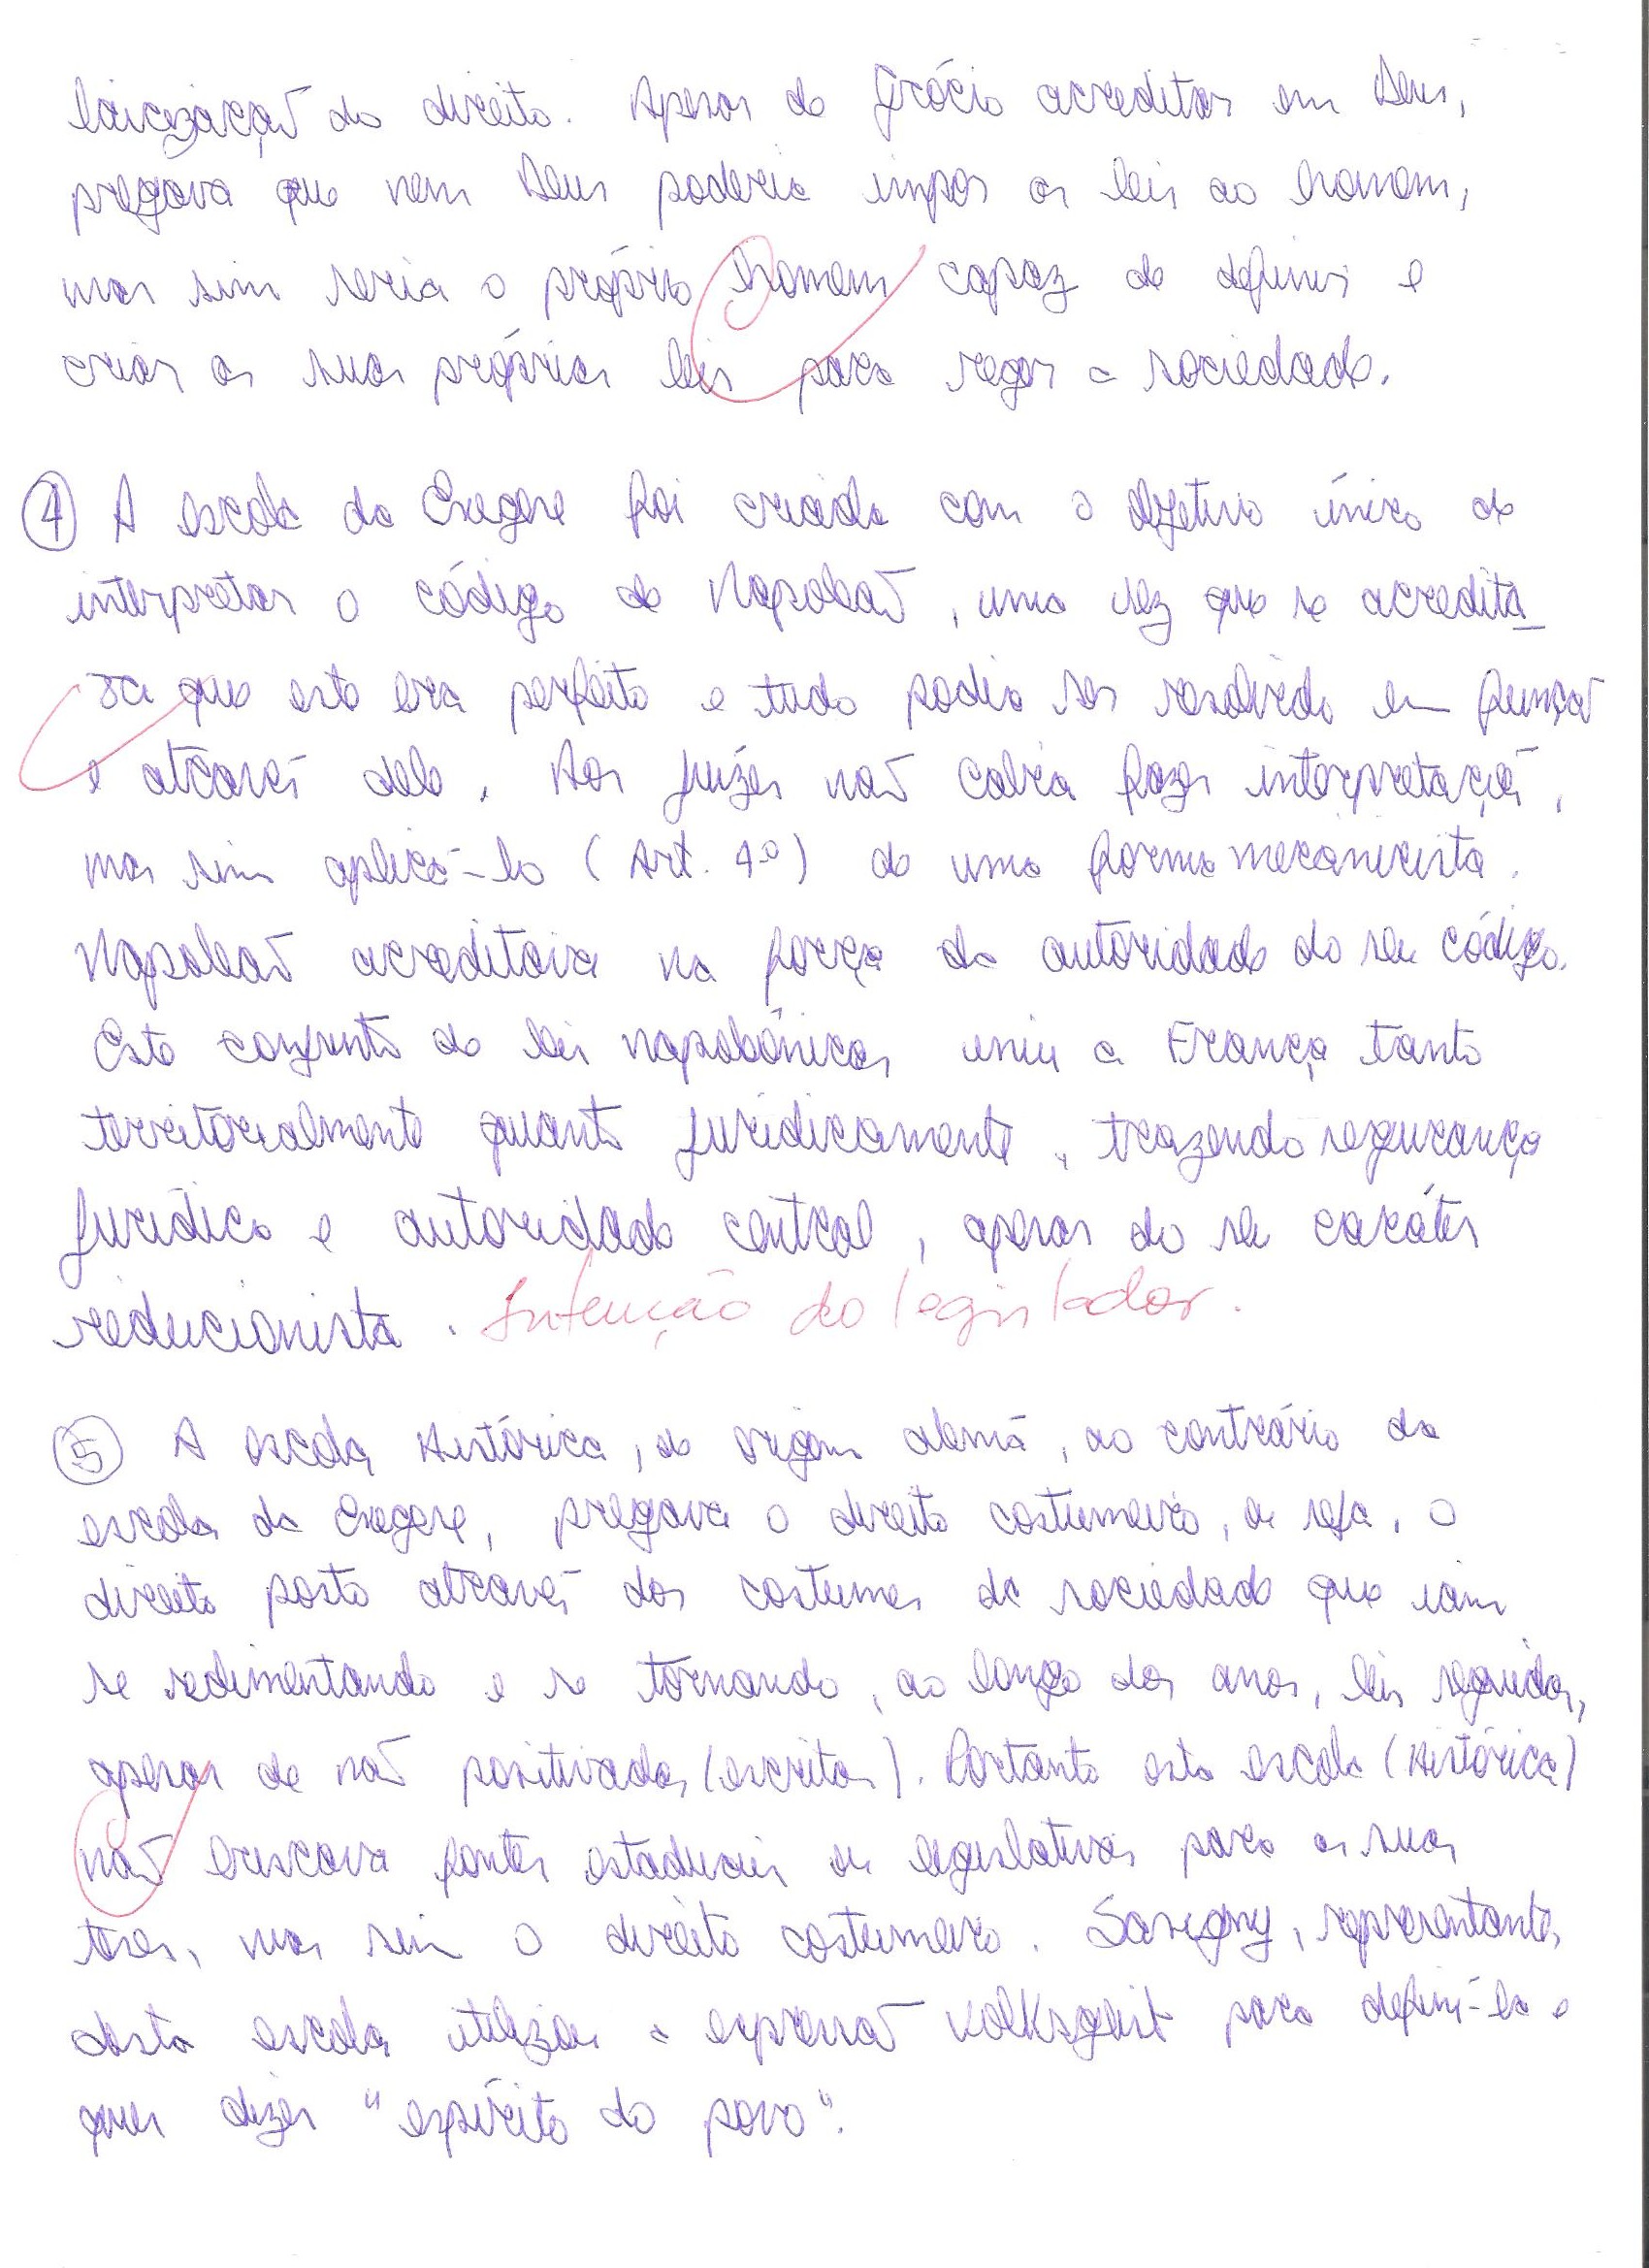 laicização do direito. Apesar de Grócio acreditar em Deus,
pregava que nem Deus poderia impor as leis ao homem,
mas sim seria o próprio homem capaz de definir e
criar as suas próprias leis para reger a sociedade.
4 A escola da Exegese foi criada com o objetivo único de
interpretar o código de Napoleão, uma vez que se acredita_
va que este era perfeito e tudo podia ser resolvido em função
e através dele. Aos juízes não cabia fazer interpretação,
mas sim aplicá-lo (Art. 4º) de uma forma mecanicista.
Napoleão acreditava na força da autoridade do seu código.
Este conjunto de leis napoleônicas uniu a França tanto
territorialmente quanto juridicamente, trazendo segurança
jurídica e autoridade central, apesar do seu caráter
reducionista. Intenção do legislador.
5 A escola Histórica, de origem alemã, ao contrário da
escola da Exegese, pregava o direito costumeiro, ou seja, o
direito posto através dos costumes da sociedade que iam
se sedimentando e se tornando, ao longo dos anos, leis seguidas,
apesar de não positivadas (escritas). Portanto esta escola (Histórica)
não buscava fontes estaduais ou legislativas para as suas
teses, mas sim o direito costumeiro. Savigny, representante
desta escola utilizou a expressão Volksgeist para defini-la e
quer dizer "espírito do povo".